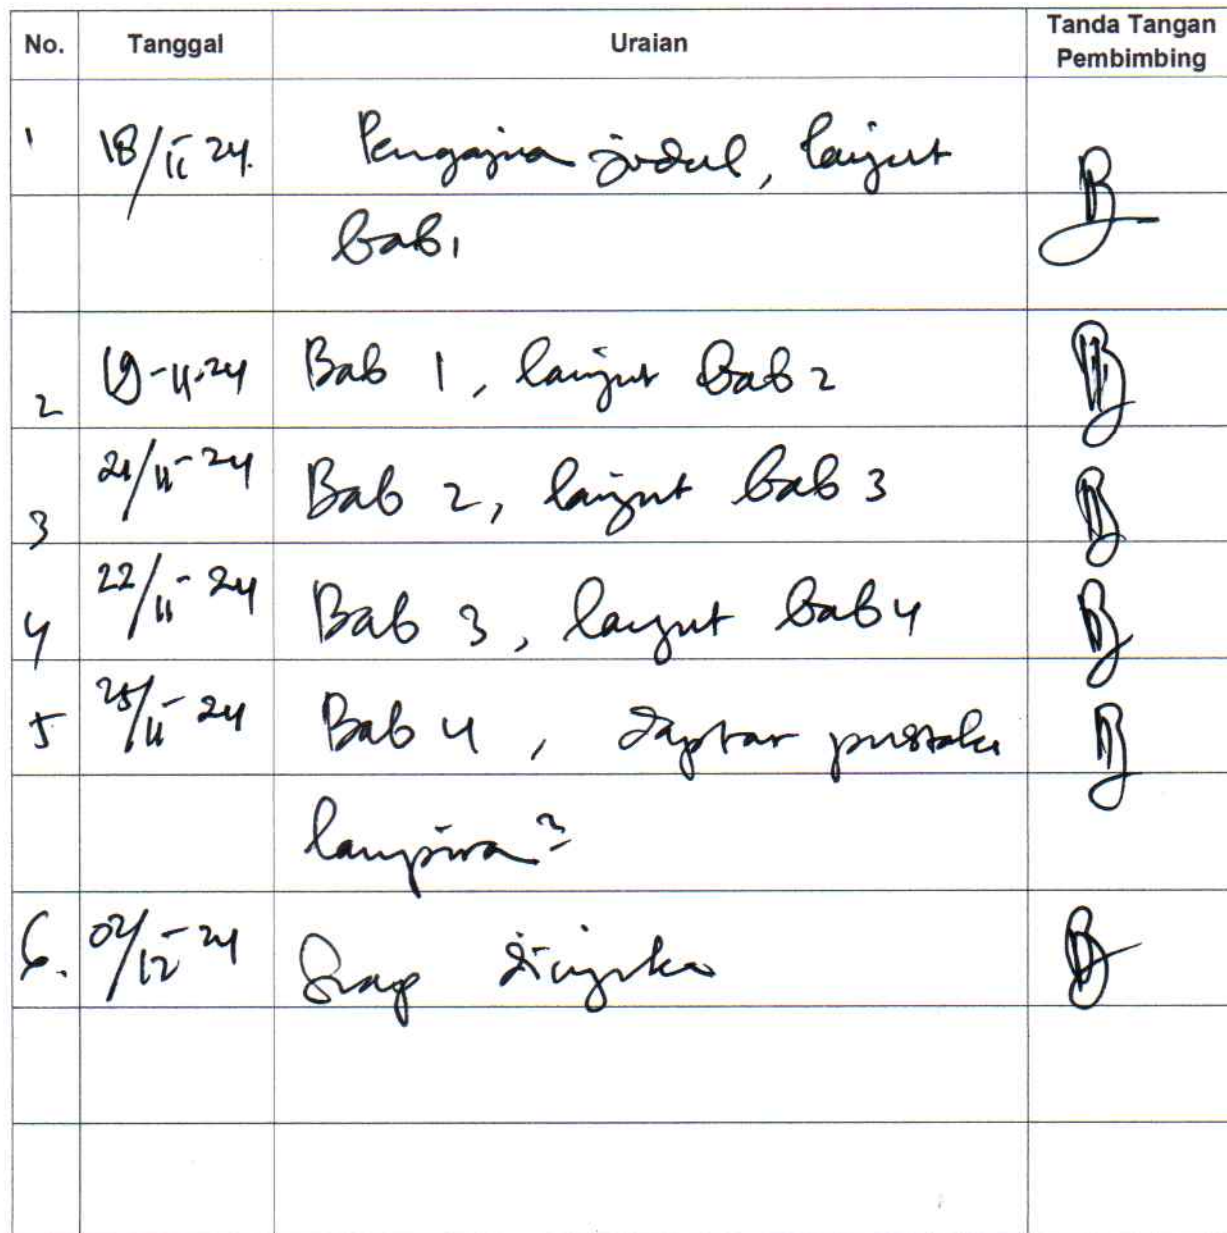 No. Tanggal Uraian Tanda Tangan Pembimbing
1 18/11 24. Pengajua judul, lanjut
bab 1
2 19-11-24 Bab 1, lanjut bab 2
3 21/11-24 Bab 2, lanjut bab 3
4 22/11-24 Bab 3, lanjut bab 4
5 25/11-24 Bab 4, daptar pustaka
lampira 2
6. 02/12-24 Siap diujika